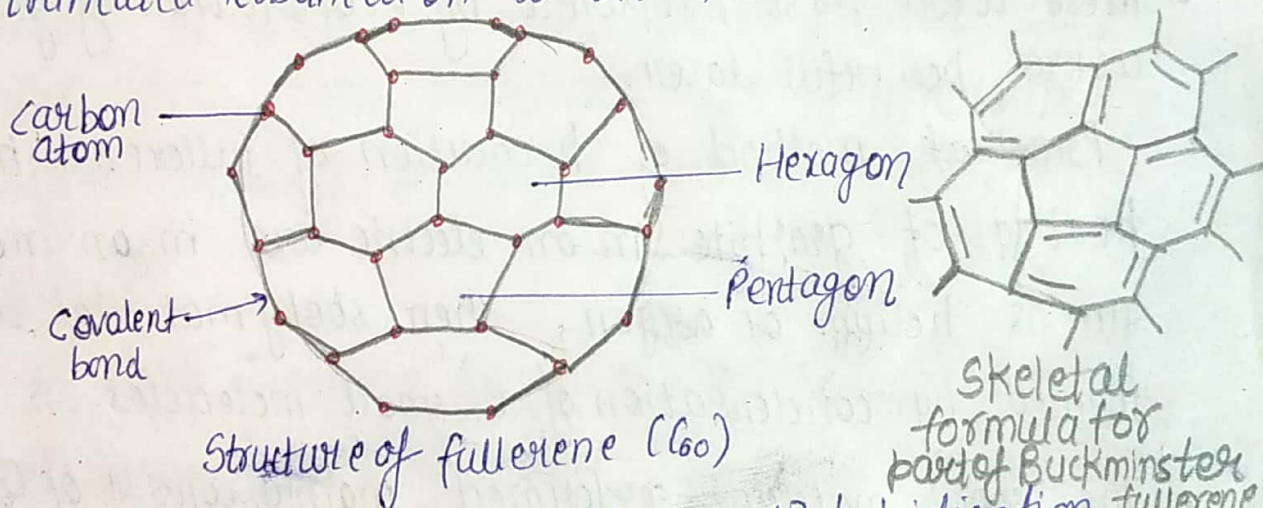 Carbon
atom
Hexagon
Pentagon
Covalent
bond
Structure of fullerene (C60)
Skeletal
formula for
part of Buckminster
fullerene